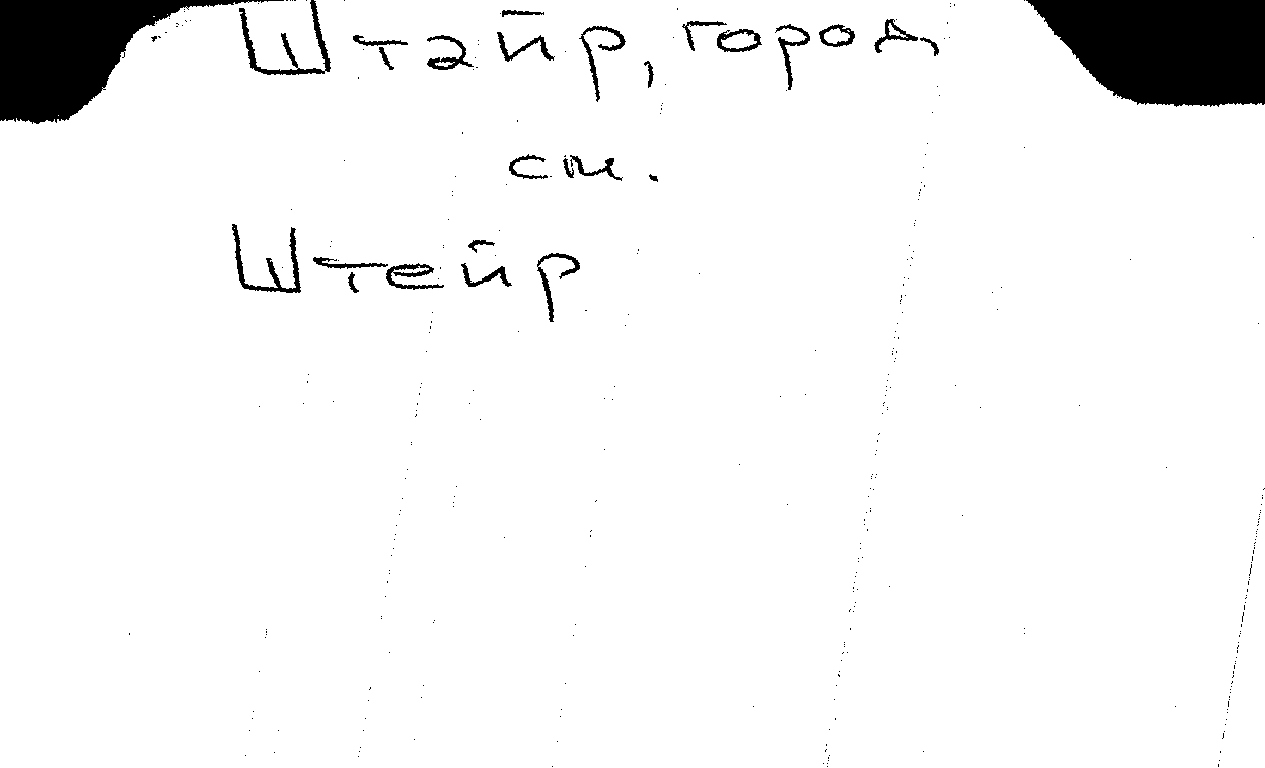 Штайр, город
см.
Штейр